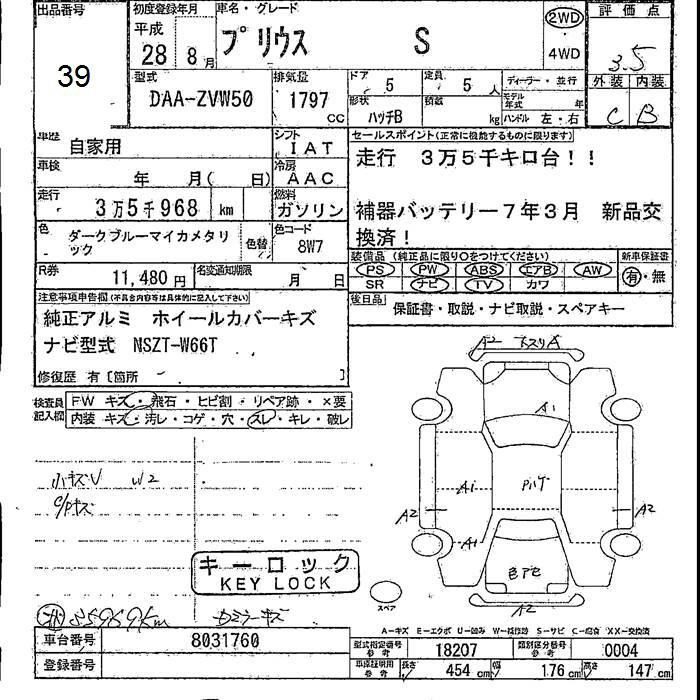 出品番号
39
初度登録年月
平成
28年8月
車名・グレード
プリウス S
2WD
・
4WD
評価点
3.5
外装 内装
C B
型式
DAA-ZVW50
排気量
1797
CC
ドア 5
定員 5人
形状 ハッチB
積載 kg
ディーラー・並行
モデル年式 年
ハンドル 左・右
車歴 自家用
シフト IAT
車検 年 月( 日)
冷房 AAC
走行 3万5千968 km
燃料 ガソリン
色 ダークブルーマイカメタリック
色替
色コード 8W7
R券 11,480円
名変通知期限 月 日
セールスポイント(正常に機能するものに限ります)
走行 3万5千キロ台!!
補器バッテリー7年3月 新品交
換済!
装備品(純正品に限り○をつけてください)
PS PW ABS エアB AW
SR ナビ TV カワ
新車保証書
有・無
後日品
保証書・取説・ナビ取説・スペアキー
注意事項申告欄(不具合内容等は具体的に記入して下さい)
純正アルミ ホイールカバーキズ
ナビ型式 NSZT-W66T
修復歴 有[箇所 ]
検査員
記入欄
FW キズ・飛石・ヒビ割・リペア跡・×要
内装 キズ・汚レ・コゲ・穴・スレ・キレ・破レ
小キズU W2
C/Pキズ
キーロック
KEY LOCK
35969km
A2
A1
A1
A2
A2
A1
A2
スペア
A-キズ E-エクボ U-凹み W-補修跡 S-サビ C-腐食 XX-交換済
車台番号 8031760
登録番号
型式指定番号
参考
18207
類別区分番号
参考
0004
車検証明用
参考
長さ 454 cm 幅 176 cm 高さ 147 cm